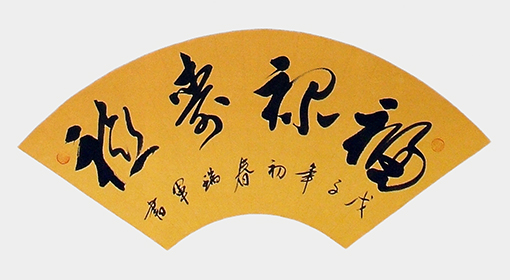 福禄寿禧
戊子年初春瑞軍書